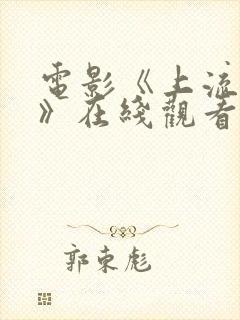 電影《上流
》在綫觀看
郭東彪